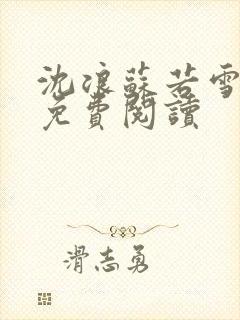 沈浪蘇若雪
免費閱讀
滑志勇